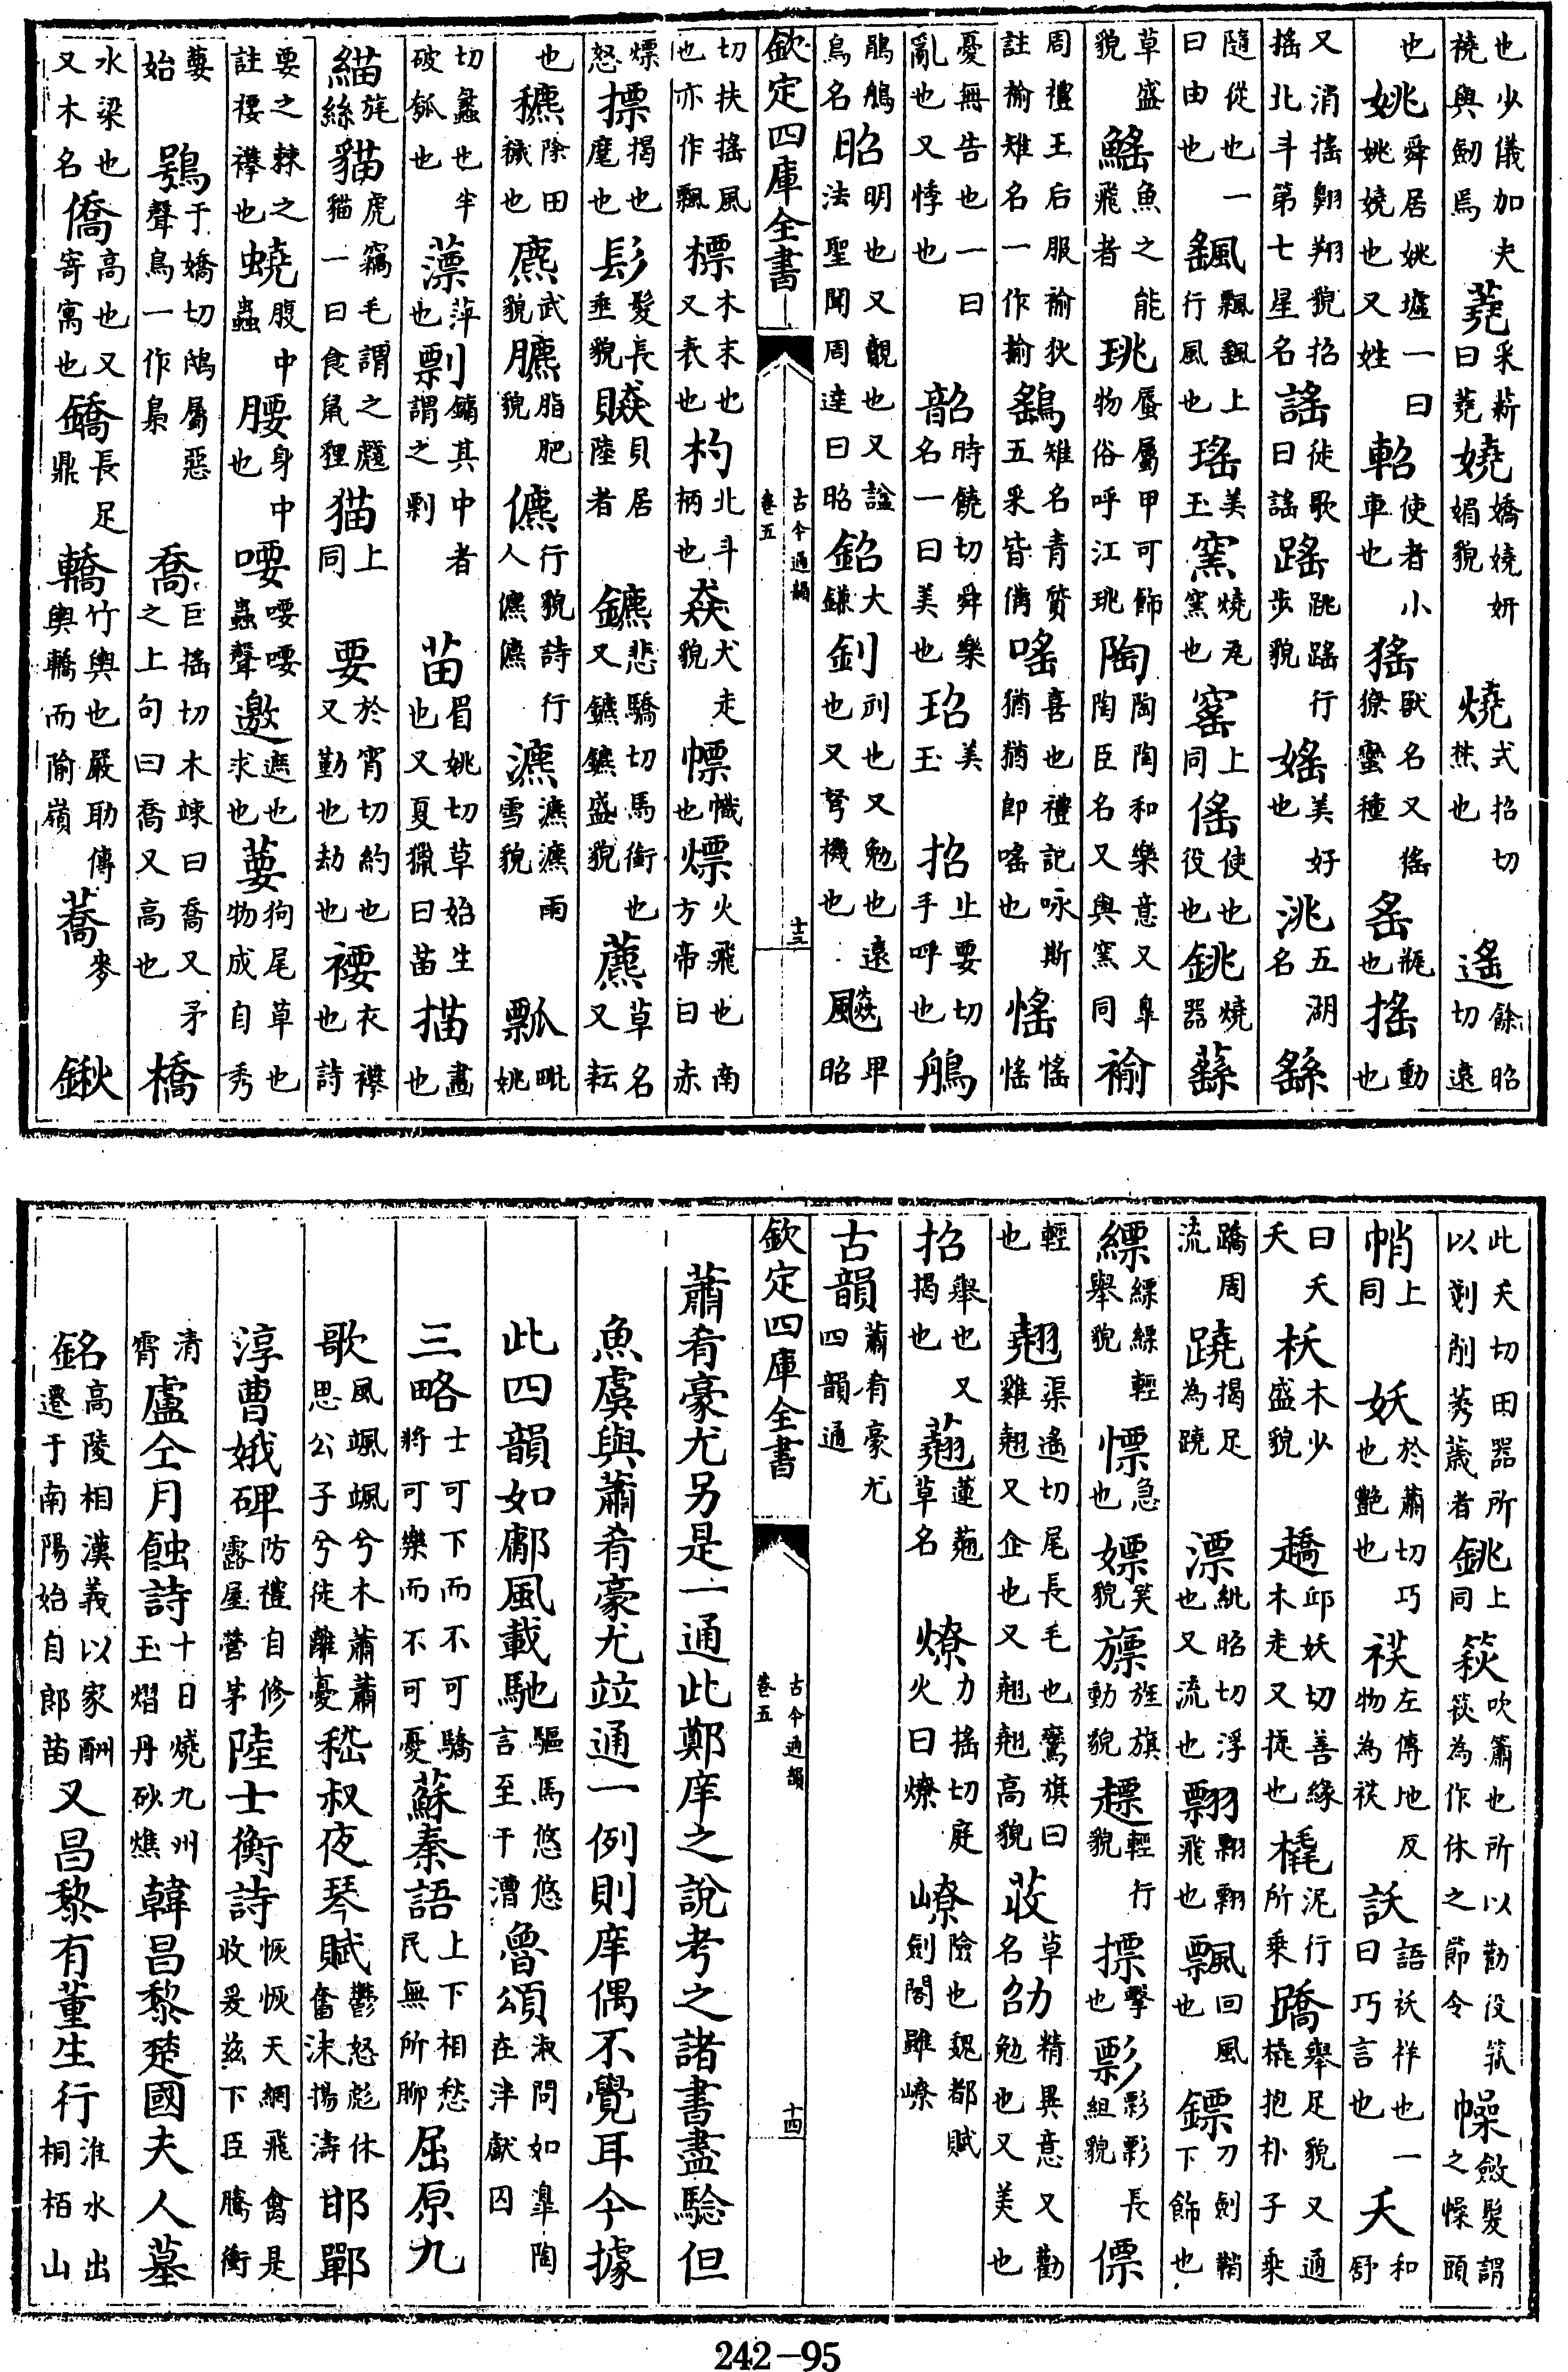 也少儀加夫橈與劒焉蕘采薪曰蕘嬈嬌嬈妍媚貌燒式招切爇也遙餘昭切遠
也姚舜居姚墟一曰姚嬈也又姓軺使者小車也猺獸名又猺獠蠻種䍃瓶也搖動也
又消搖翺翔貌招搖北斗第七星名謠徒歌曰謠䠛跳䠛行步貌媱美好也洮五湖名繇
隨從也一曰由也颻飄颻上行風也瑤美玉窯燒瓦窯也窰上同傜使也役也銚燒器蘨
草盛貌鰩魚之能飛者珧蜃屬甲可飾物俗呼江珧陶陶陶和樂意又臯陶臣名又與窯同褕
周禮王后服褕狄註褕雉名一作揄鷂雉名青質五采皆備嗂喜也禮記咏斯猶猶即嗂也愮愮愮
憂無告也一曰亂也又悸也韶時饒切舜樂名一曰美也玿美玉招止要切手呼也鵃
鶻鵃鳥名昭明也又覿也又諡法聖聞周達曰昭鉊大鎌釗刓也又勉也遠也又弩機也飈甲昭
欽定四庫全書 古今通韻 卷五 十三
切扶搖風也亦作飄標木末也又表也杓北斗柄也猋犬走貌幖幟也熛火飛也南方帝曰赤
熛怒摽揭也麾也髟髮長垂貌贆貝居陸者鑣悲驕切馬銜也又鑣鑣盛貌藨草名又耘
也穮除田穢也麃武貌臕脂肥貌儦行貌詩行人儦儦瀌瀌瀌雨雪貌瓢毗姚
切蠡也半破瓠也薸萍也剽鏞其中者謂之剽苗眉姚切草始生也又夏獵曰苗描畫也
緢旄絲貓虎竊毛謂之虦貓一曰食鼠狸猫上同要於宵切約也又勤也劫也褄衣襻也詩
要之棘之註褄襻也蟯腹中蟲腰身中也喓喓喓蟲聲邀遮也求也葽狗尾草也物成自秀
葽始鴞于嬌切鴟屬惡聲鳥一作梟喬巨搖切木竦曰喬又矛之上句曰喬又高也橋
水梁也又木名僑高也又寄寓也鐈長足鼎轎竹輿也嚴助傳輿轎而隃嶺蕎麥鍬
此夭切田器所以剗削莠薉者銚上同篍吹簫也所以勸役筑篍為作休之節令幧斂髮謂之幧頭
帩上同妖於蕭切巧也艷也祅左傳地反物為祅訞語祅祥也一曰巧言也夭和舒
曰夭夭枖木少盛貌趫邱妖切善緣木走又㨗也橇泥行所乘蹻舉足貌又通橇抱朴子乘
蹻周流蹺揭足為蹺漂紕昭切浮也又流也翲翲翲飛也飄回風也鏢刀劍鞘下飾也
縹縹縹輕舉貌慓急也嫖笑貌旚旌旗動貌輕行貌摽擊也彯彯彯長組貌僄
輕也翹渠遙切尾長毛也鸞旗曰雞翹又企也又翹翹高貌荍草名劭精異意又勸勉也又美也
招舉也又揭也蘬蓮翹草名燎力搖切庭火曰燎嶚險也魏都賦劍閣雖嶚
古韻蕭肴豪尤四韻通
欽定四庫全書 古今通韻 卷五 十四
蕭肴豪尤另是一通此鄭庠之說考之諸書盡驗但
魚虞與蕭肴豪尤竝通一例則庠偶不覺耳今據
此四韻如鄘風載馳驅馬悠悠言至于漕魯頌淑問如臯陶在泮獻囚
三略士可下而不可驕將可樂而不可憂蘇秦語上下相愁民無所聊屈原九
歌風颯颯兮木蕭蕭思公子兮徒離憂嵇叔夜琴賦鬱怒彪休奮沫揚濤邯鄲
淳曹娥碑防禮自修露屋營茅陸士衡詩恢恢天網飛禽是收爰茲下臣騰衝
清霄盧仝月蝕詩十日燒九州玉熠丹砂燋韓昌黎楚國夫人墓
銘高陵相漢義以家酬遷于南陽始自郎苗又昌黎有董生行淮水出桐栢山
242-95